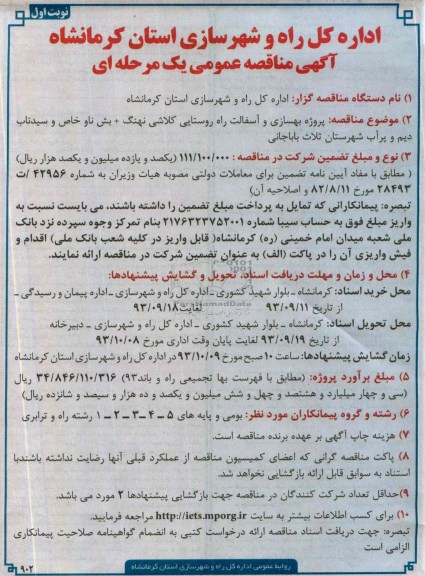 نوبت اول
اداره کل راه و شهرسازی استان کرمانشاه
آگهی مناقصه عمومی یک مرحله ای
۱) نام دستگاه مناقصه گزار: اداره کل راه و شهرسازی استان کرمانشاه
۲) موضوع مناقصه: پروژه بهسازی و آسفالت راه روستایی کلاشی نهنگ + بش ناو خاص و سیدناب
دیم و پرآب شهرستان ثلاث باباجانی
۳) نوع و مبلغ تضمین شرکت در مناقصه : ۱۱۱/۱۰۰/۰۰۰ (یکصد و یازده میلیون و یکصد هزار ریال)
( مطابق با مفاد آیین نامه تضمین برای معاملات دولتی مصوبه هیات وزیران به شماره ۴۲۹۵۶ /ت
۲۸۴۹۳ مورخ ۸۲/۸/۱۱ و اصلاحیه آن)
تبصره: پیمانکارانی که تمایل به پرداخت مبلغ تضمین را داشته باشند، می بایست نسبت به
واریز مبلغ فوق به حساب سیبا شماره ۲۱۷۶۳۲۳۷۵۳۰۰۱ بنام تمرکز وجوه سپرده نزد بانک
ملی شعبه میدان امام خمینی (ره) کرمانشاه( قابل واریز در کلیه شعب بانک ملی) اقدام و
فیش واریزی آن را در پاکت (الف) به عنوان تضمین شرکت در مناقصه ارائه نمایند.
۴) محل و زمان و مهلت دریافت اسناد، تحویل و گشایش پیشنهادها:
محل خرید اسناد: کرمانشاه ـ بلوار شهید کشوری ـ اداره کل راه و شهرسازی ـ اداره پیمان و رسیدگی ـ
از تاریخ ۹۳/۰۹/۱۱ لغایت ۹۳/۰۹/۱۸
محل تحویل اسناد: کرمانشاه ـ بلوار شهید کشوری ـ اداره کل راه و شهرسازی ـ دبیرخانه
از تاریخ ۹۳/۰۹/۱۹ لغایت پایان وقت اداری مورخ ۹۳/۱۰/۰۸
زمان گشایش پیشنهادها: ساعت ۱۰ صبح مورخ ۹۳/۱۰/۰۹ در اداره کل راه و شهرسازی استان کرمانشاه
۵) مبلغ برآورد پروژه: (مطابق با فهرست بها تجمیعی راه و باند۹۳) ۳۴/۸۴۶/۱۱۰/۳۱۶ ریال
(سی و چهار میلیارد و هشتصد و چهل و شش میلیون و یکصد و ده هزار و سیصد و شانزده ریال)
۶) رشته و گروه پیمانکاران مورد نظر: بومی و پایه های ۵ ـ ۴ ـ ۳ ـ ۲ ـ ۱ رشته راه و ترابری
۷) هزینه چاپ آگهی بر عهده برنده مناقصه است.
۸) پاکت مناقصه گرانی که اعضای کمیسیون مناقصه از عملکرد قبلی آنها رضایت نداشته باشندبا
استناد به سوابق قابل ارائه بازگشایی نخواهد شد.
۹)حداقل تعداد شرکت کنندگان در مناقصه جهت بازگشایی پیشنهادها ۲ مورد می باشد.
۱۰) برای کسب اطلاعات بیشتر به سایت http://iets.mporg.ir مراجعه فرمایید.
تبصره: جهت دریافت اسناد مناقصه ارائه درخواست کتبی به انضمام گواهینامه صلاحیت پیمانکاری
الزامی است
روابط عمومی اداره کل راه و شهرسازی استان کرمانشاه
۹۰۲